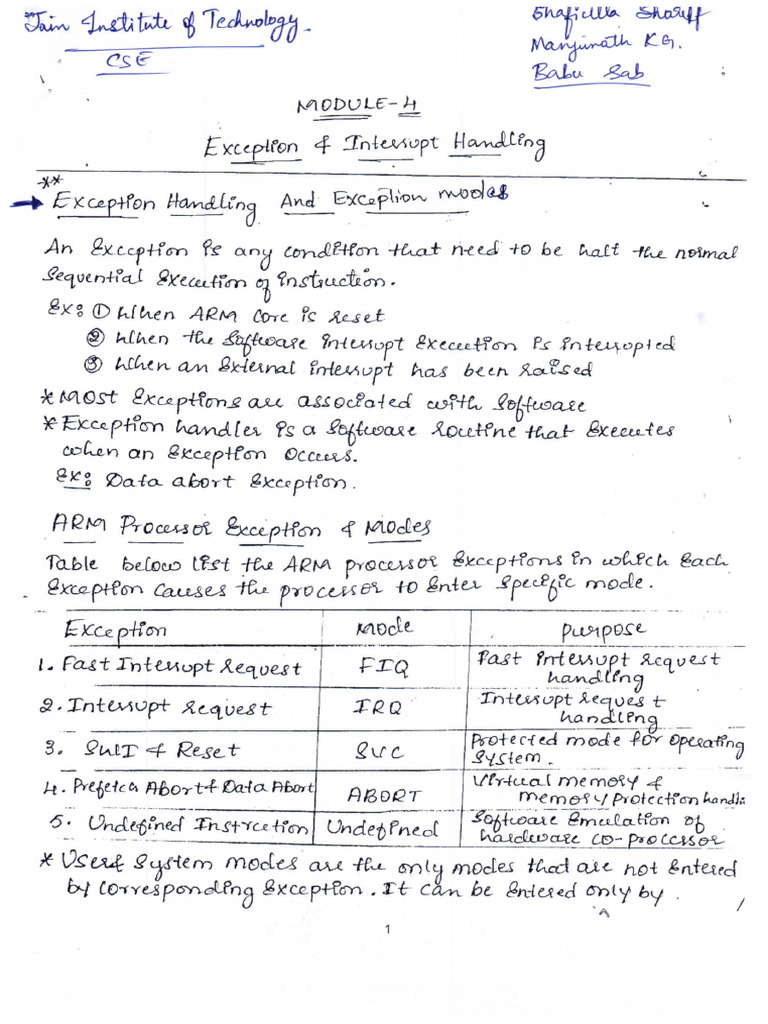 Jain Institute of Technology.
CSE
Shafiulla Shariff
Manjunath KG.
Babu Sab
MODULE-4
Exception & Interrupt Handling
**
→ Exception Handling And Exception modes
An Exception is any condition that need to be halt the normal
Sequential Execution of instruction.
Ex: ① When ARM core is reset
② When the Software interrupt Execution is interrupted
③ When an External interrupt has been raised
* Most Exceptions are associated with Software
* Exception handler is a Software routine that Executes
when an Exception Occurs.
Ex: Data abort Exception.
ARM Processor Exception & Modes
Table below list the ARM processor Exceptions in which Each
Exception causes the processor to Enter specific mode.
Exception Mode Purpose
1. Fast Interrupt request FIQ Fast interrupt request
handling
2. Interrupt request IRQ Interrupt request
handling
3. SWI & Reset SVC Protected mode for operating
system.
4. Prefetch Abort & Data Abort ABORT Virtual memory &
memory protection handli
5. Undefined Instrcetion Undefined Software Emulation of
hardware co-processor
* User & System modes are the only modes that are not Entered
by corresponding Exception. It can be Entered only by.
1